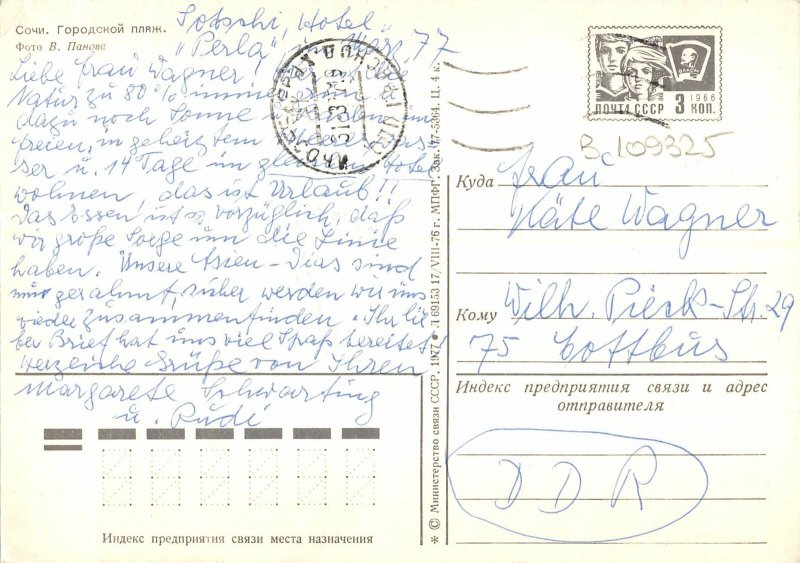 Сочи. Городской пляж.
Фото В. Панова
Sotschi, Hotel
"Perla", März 77
Liebe Frau Wagner!
Natur zu 80 % immergrün
dazu noch Sonne
freien, in geheiztem
ser u. 14 Tage im gleichen Hotel
wohnen, das ist Urlaub!!
Das Essen ist so vorzüglich, daß
wir große Sorge um die Linie
haben. Unsere Asien-Dias sind
nur gerahmt, sicher werden wir uns
wieder zusammenfinden. Ihr lie-
ber Brief hat uns viel Spaß bereitet!
Herzliche Grüße von Ihren
Margarete Schwarting
u. Rudi
Индекс предприятия связи места назначения
* © Министерство связи СССР. 1977 * Л 69153 17/VIII-76 г. МПФГ. Зак. 77-5364. Ц. 4 к.
ВЛКСМ
1966
ПОЧТА СССР 3 КОП.
Вс 109325
Куда Frau
Käte Wagner
Кому Wilh. Pieck-Str. 29
75 Cottbus
Индекс предприятия связи и адрес
отправителя
DDR